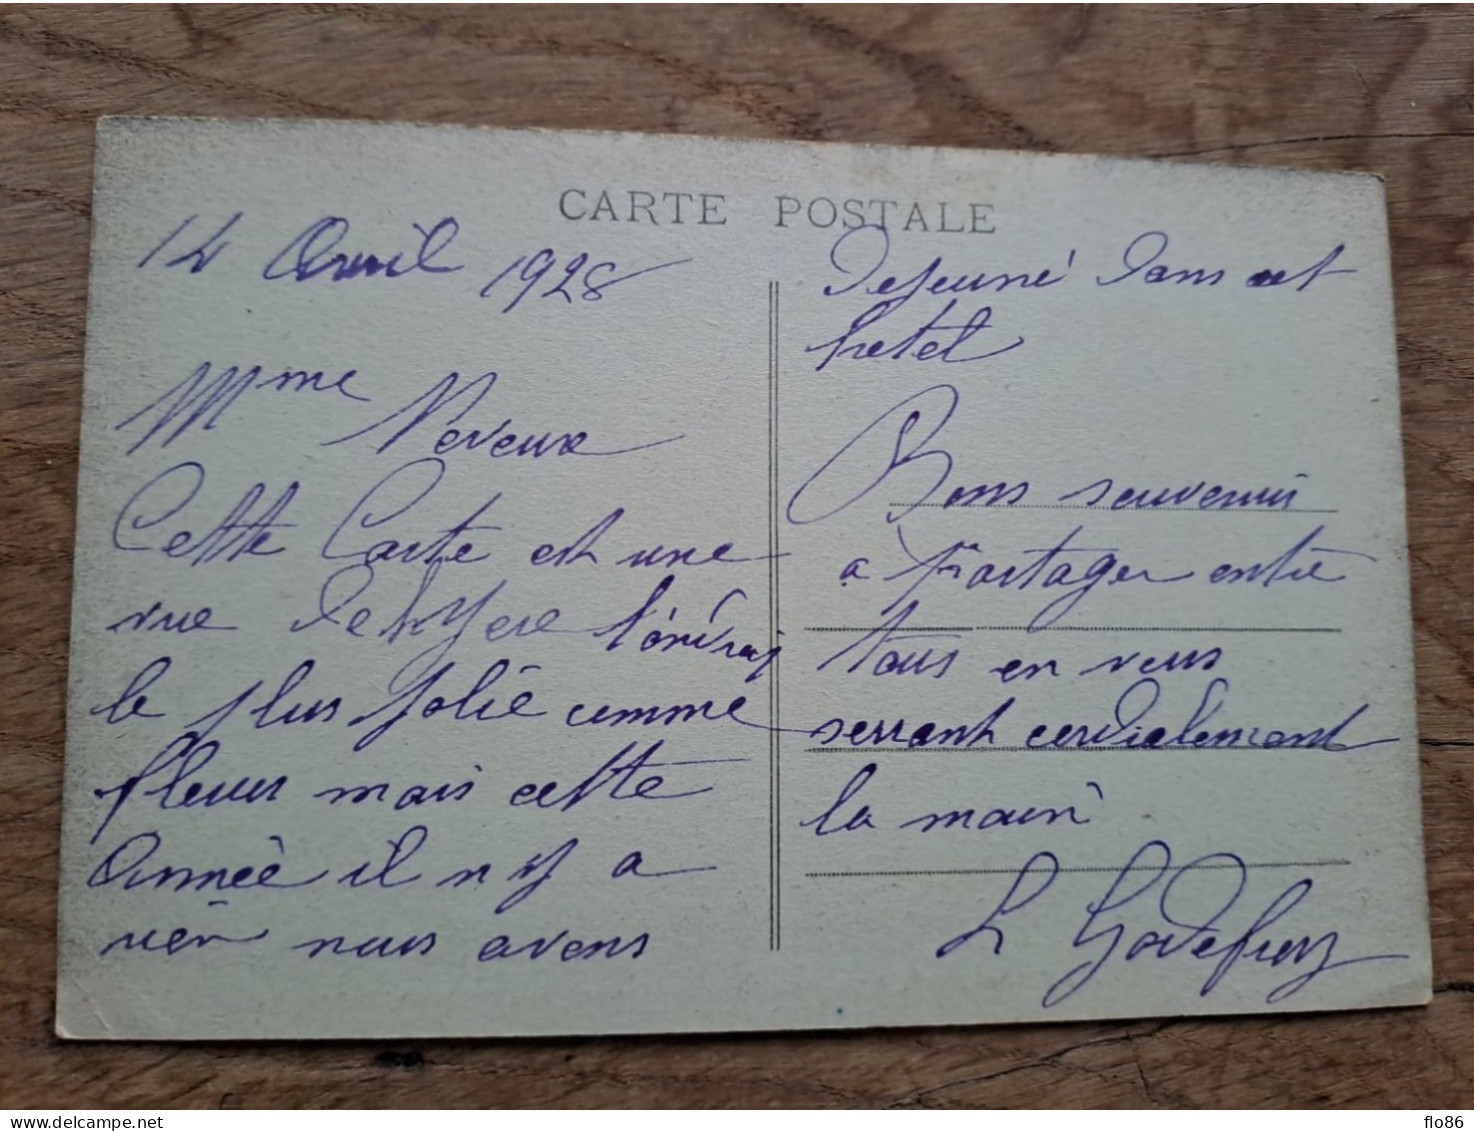 CARTE POSTALE
14 Avril 1928
Mme Neveux
Cette Carte est une
vue de Hyere l'endroit
le plus Jolie comme
fleurs mais cette
Année il n y a
rien nous avons
Déjeuné dans cet
hotel
Bons souvenir
a partager entre
tous en vous
serrant cordialement
la main
L Godefroy
flo86